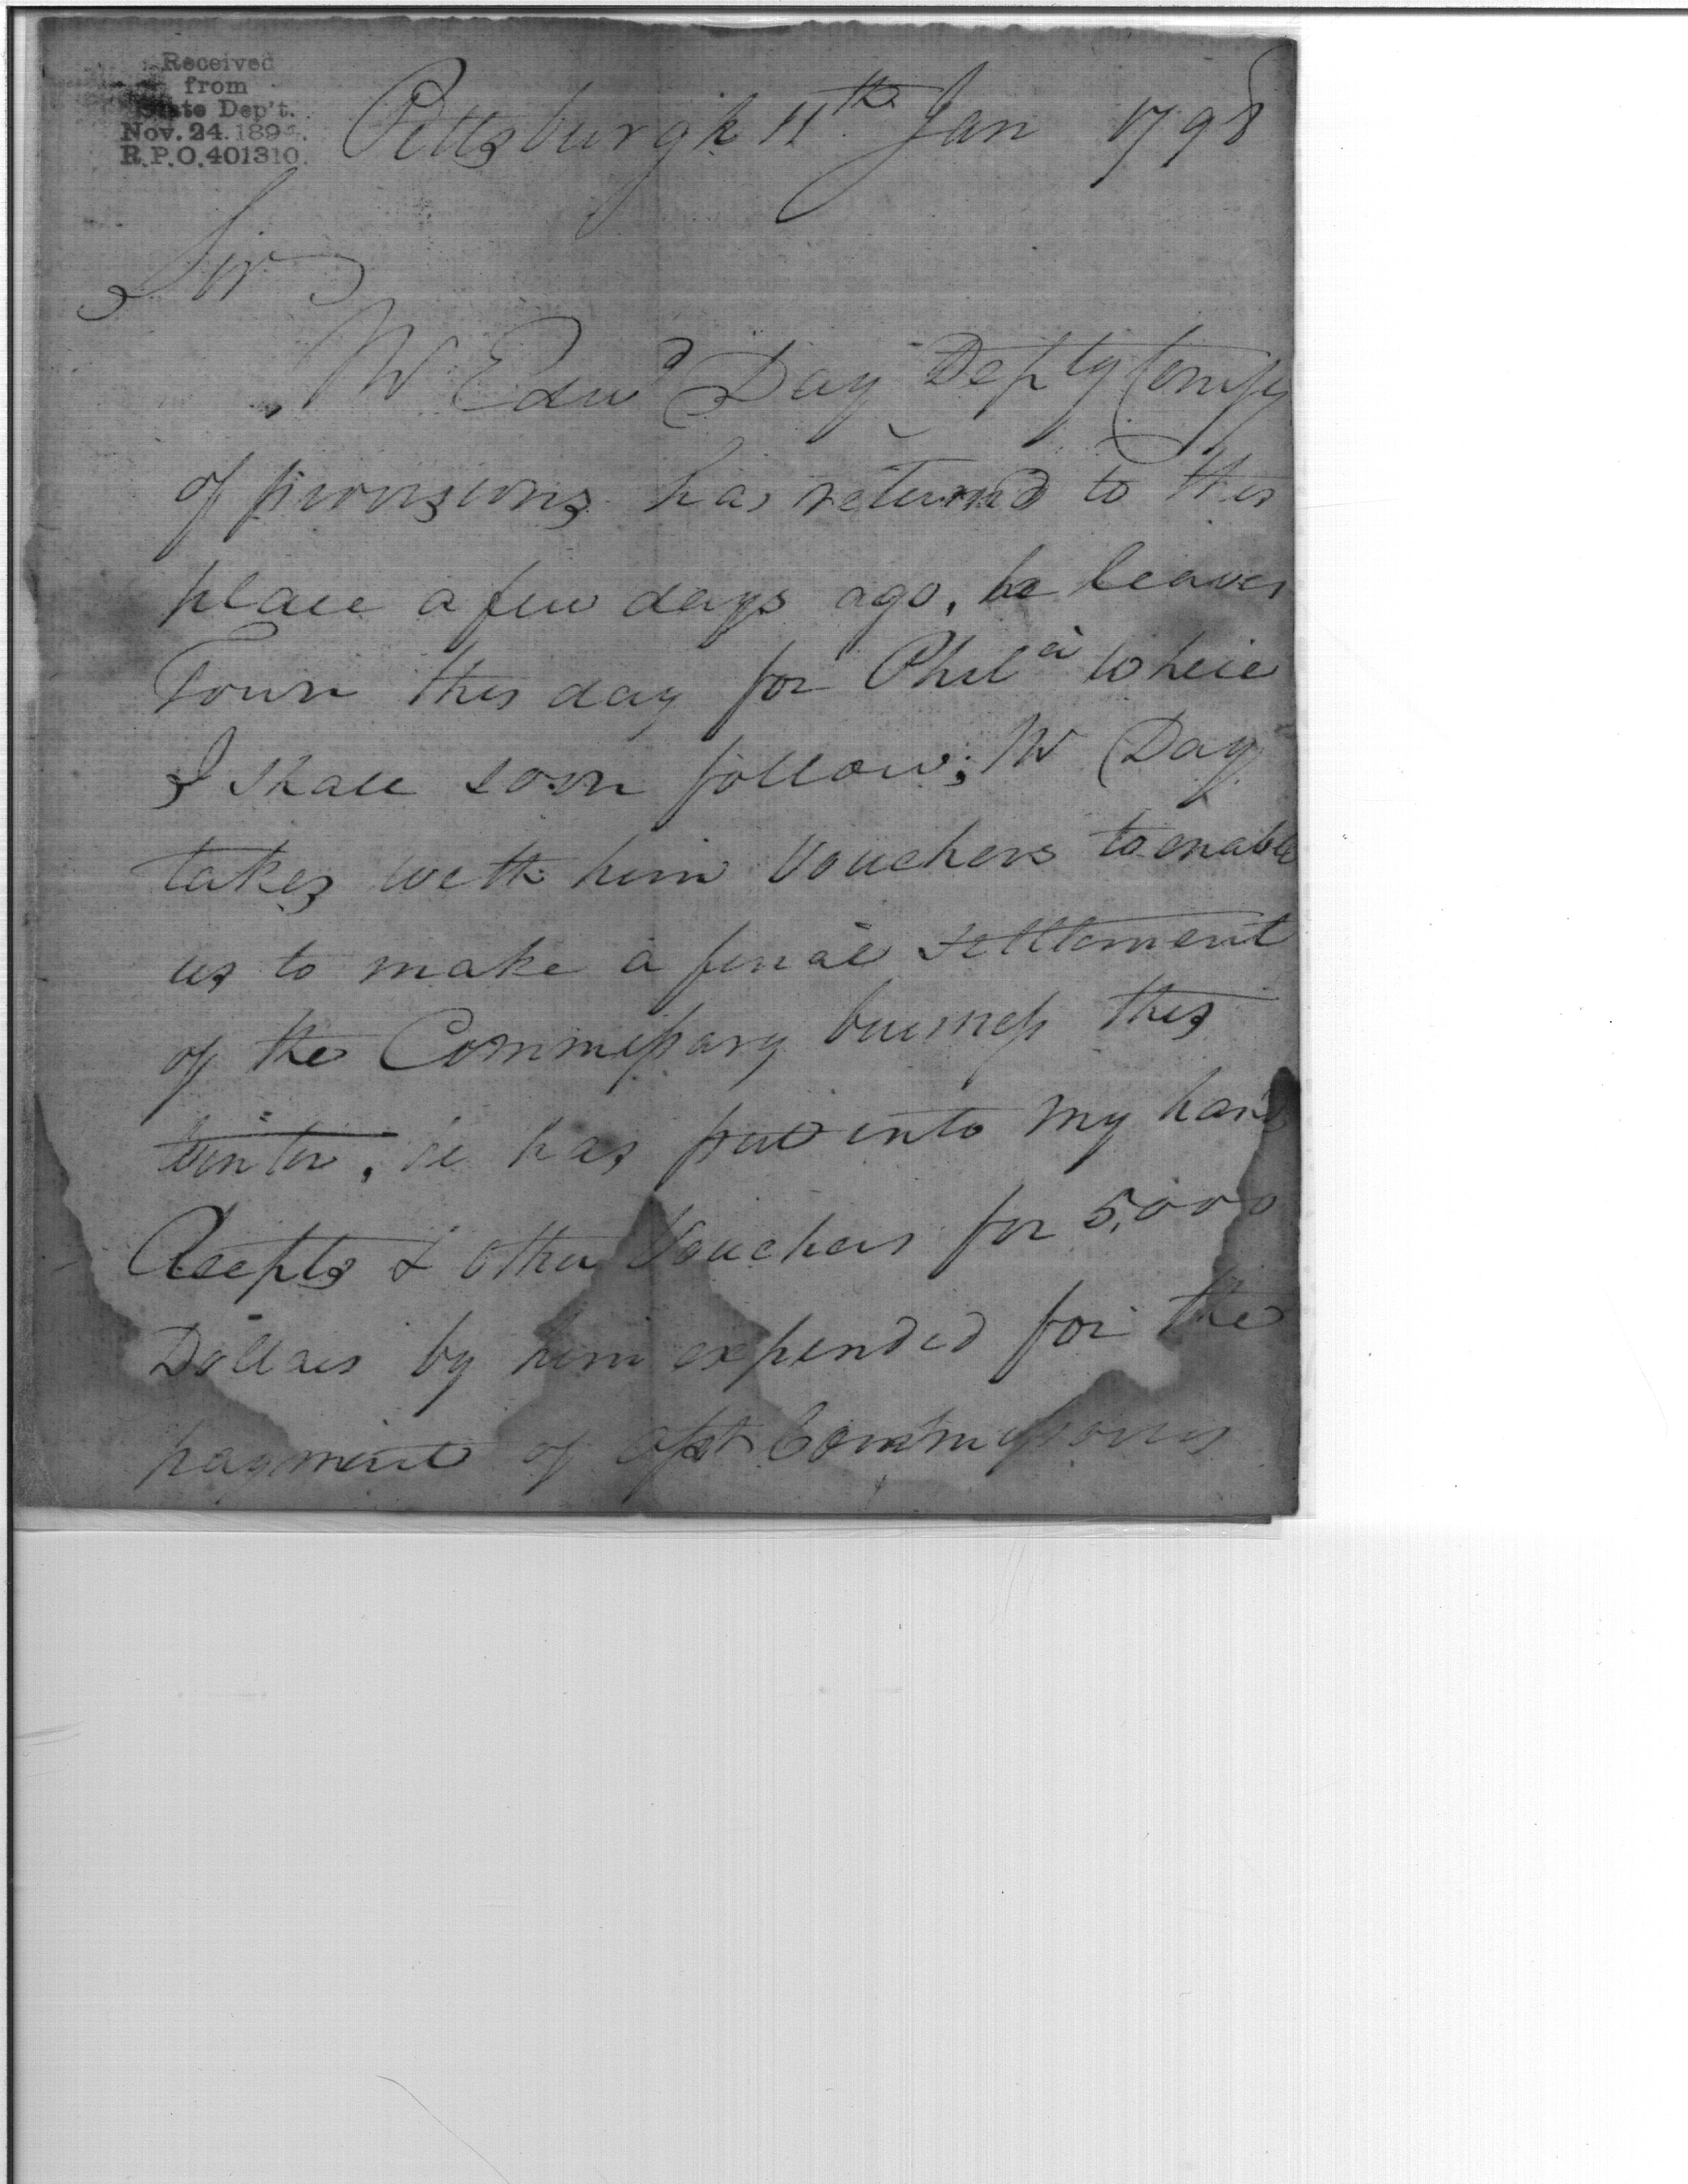 Received
from
State Dep't.
Nov. 24. 189
R.P.O. 401310.
Pittsburgh 11th Jan 1798
Sir
Mr Edwd Day Depty Comsy
of provisions has returnd to this
place a few days ago, he leaves
Town this day for Phila where
I shall soon follow; Mr Day
takes with him Vouchers to enable
us to make a final settlement
of the Commissary business this
winter, he has put into my hand
Recepts & other Vouchers for 5,000
Dollars by him expended for the
payment of asst Commissarys